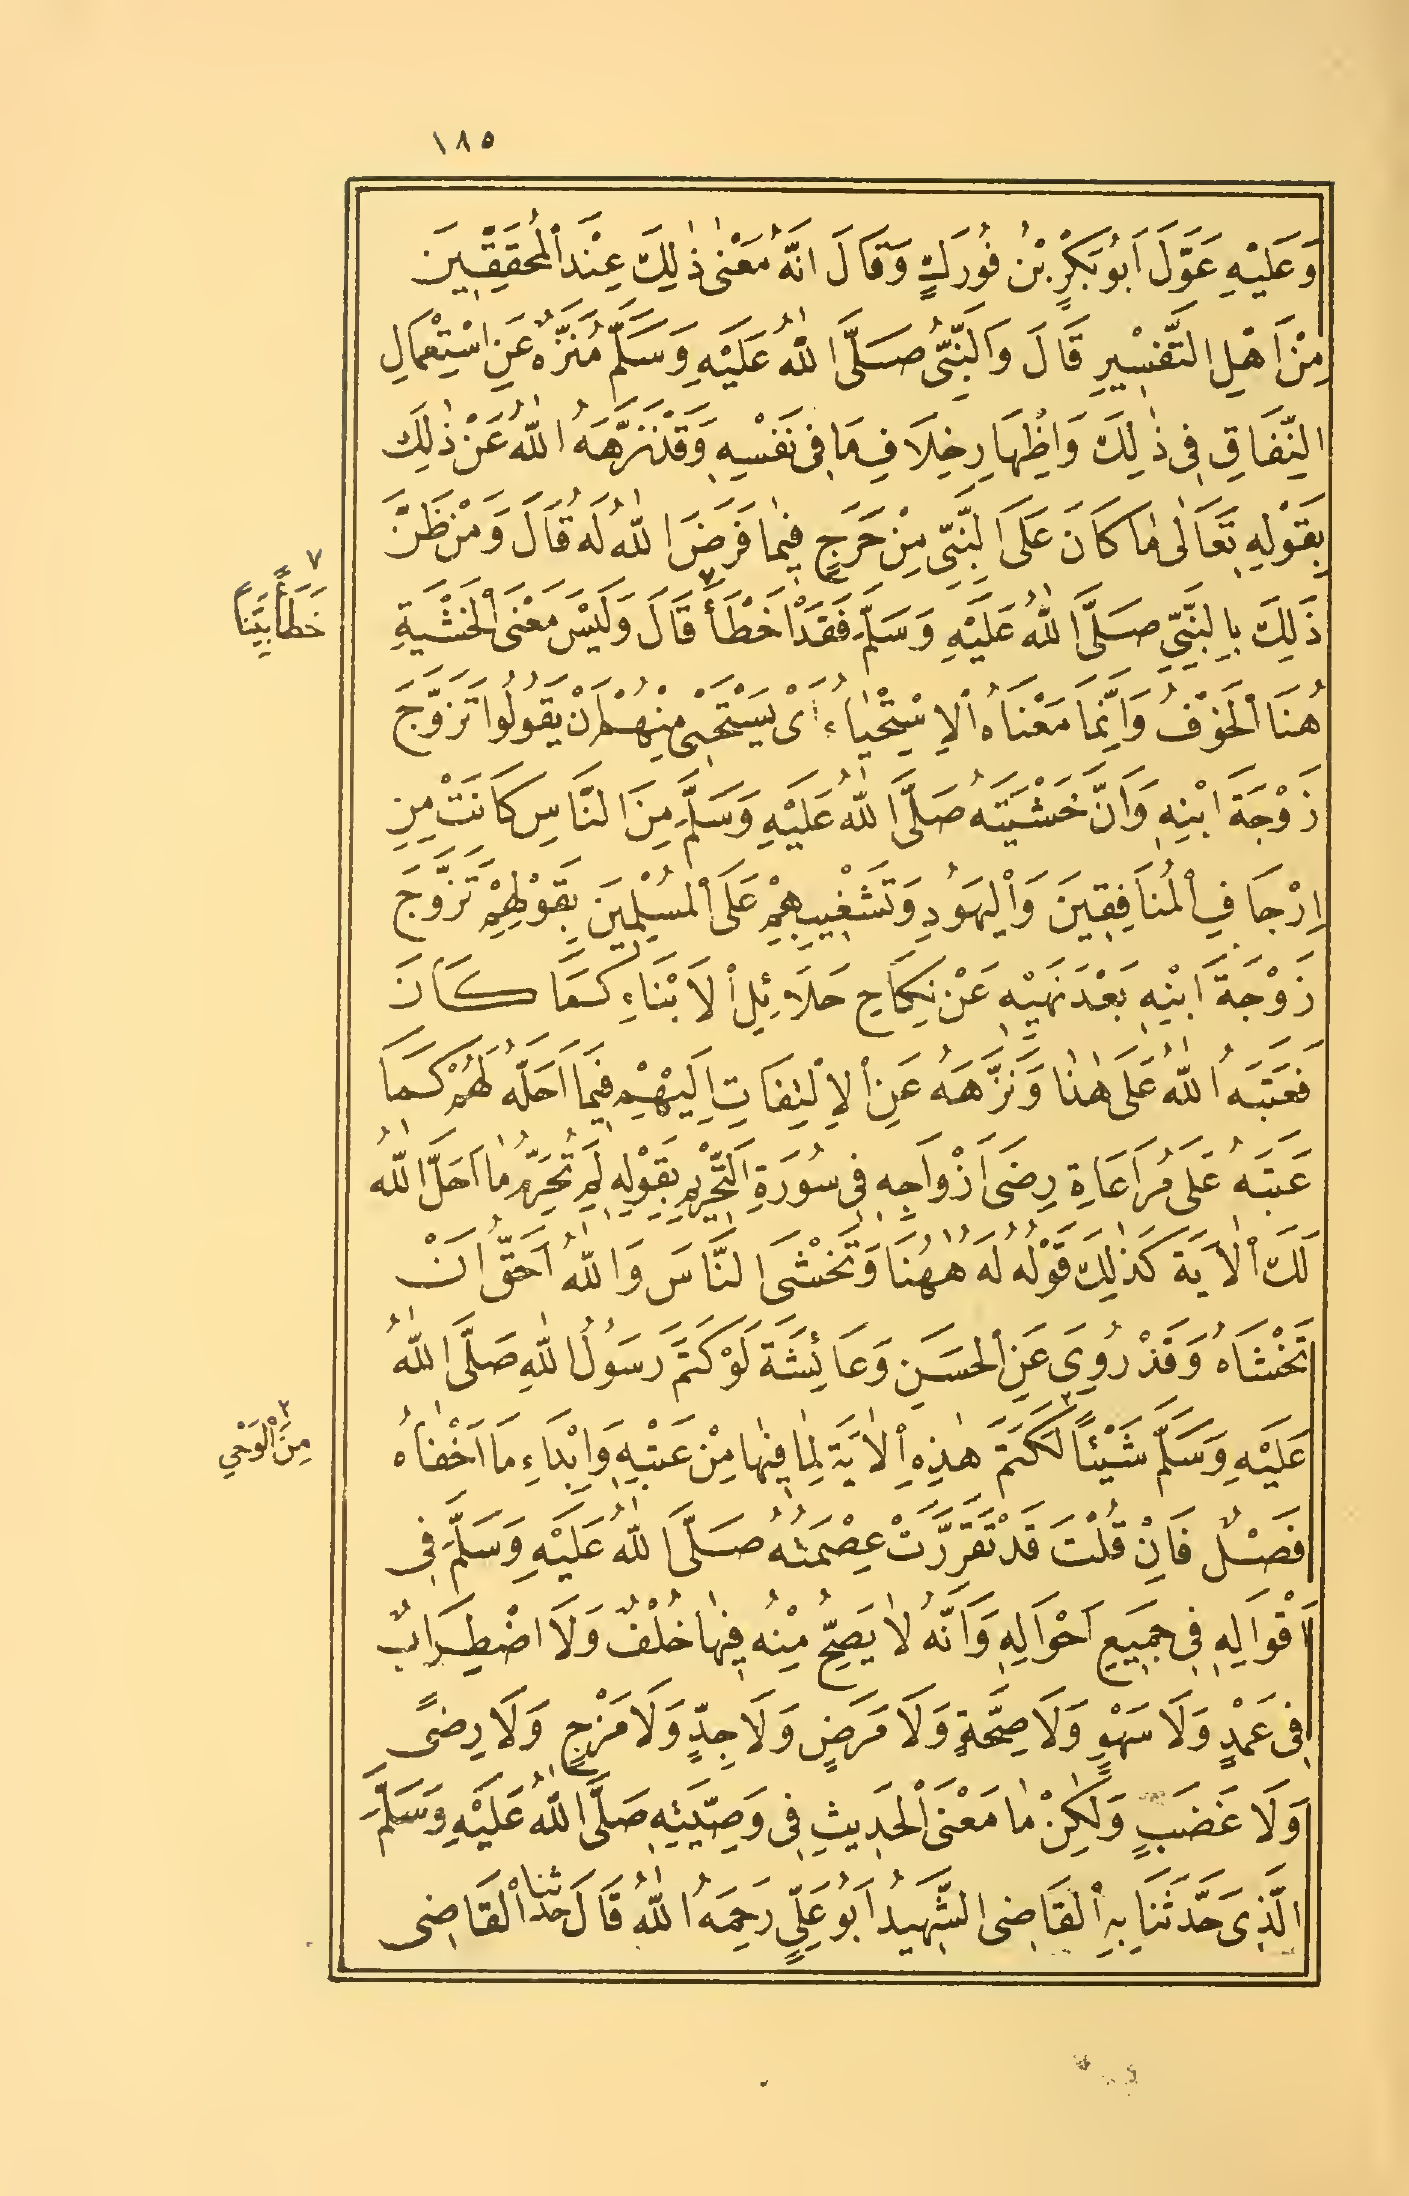 ١٨٥
وَعَلَيْهِ عَوَّلَ اَبُو بَكْرٍ بْنُ فُورَكٍ وَقَالَ اِنَّهُ مَعْنٰى ذٰلِكَ عِنْدَ الْمُحَقِّقِينَ
مِنْ اَهْلِ التَّفْسِيرِ قَالَ وَالنَّبِىُّ صَلَّى اللّٰهُ عَلَيْهِ وَسَلَّمَ مُنَزَّهٌ عَنِ اسْتِعْمَالِ
النِّفَاقِ فِى ذٰلِكَ وَاِظْهَارِ خِلَافِ مَا فِى نَفْسِهِ وَقَدْ نَزَّهَهُ اللّٰهُ عَنْ ذٰلِكَ
بِقَوْلِهِ تَعَالٰى مَا كَانَ عَلَى النَّبِىِّ مِنْ حَرَجٍ فِيمَا فَرَضَ اللّٰهُ لَهُ قَالَ وَمَنْ ظَنَّ
ذَلِكَ بِالنَّبِىِّ صَلَّى اللّٰهُ عَلَيْهِ وَسَلَّمَ فَقَدْ اَخْطَأَ ٧ قَالَ وَلَيْسَ مَعْنَى الْخَشْيَةِ
٧
خَطَأً بَيِّنًا
هُنَا الْخَوْفُ وَاِنَّمَا مَعْنَاهُ الْاِسْتِحْيَاءُ اَىْ يَسْتَحْيِى مِنْهُمْ اَنْ يَقُولُوا تَزَوَّجَ
زَوْجَةَ ابْنِهِ وَاَنَّ خَشْيَتَهُ صَلَّى اللّٰهُ عَلَيْهِ وَسَلَّمَ مِنَ النَّاسِ كَانَتْ مِنْ
اِرْجَافِ الْمُنَافِقِينَ وَالْيَهُودِ وَتَشْغِيبِهِمْ عَلَى الْمُسْلِمِينَ بِقَوْلِهِمْ تَزَوَّجَ
زَوْجَةَ ابْنِهِ بَعْدَ نَهْيِهِ عَنْ نِكَاحِ حَلَائِلِ الْاَبْنَاءِ كَمَا كَانَ
فَعَتَبَهُ اللّٰهُ عَلَى هٰذَا وَنَزَّهَهُ عَنِ الْاِلْتِفَاتِ اِلَيْهِمْ فِيمَا اَحَلَّهُ لَهُمْ كَمَا
عَتَبَهُ عَلَى مُرَاعَاةِ رِضَى اَزْوَاجِهِ فِى سُورَةِ التَّحْرِيمِ بِقَوْلِهِ لِمَ تُحَرِّمُ مَا اَحَلَّ اللّٰهُ
لَكَ الْاٰيَةَ كَذٰلِكَ قَوْلُهُ لَهُ هٰهُنَا وَتَخْشَى النَّاسَ وَاللّٰهُ اَحَقُّ اَنْ
تَخْشَاهُ وَقَدْ رُوِىَ عَنِ الْحَسَنِ وَعَائِشَةَ لَوْ كَتَمَ رَسُولُ اللّٰهِ صَلَّى اللّٰهُ
عَلَيْهِ وَسَلَّمَ شَيْئًا ٢ لَكَتَمَ هٰذِهِ الْاٰيَةَ لِمَا فِيهَا مِنْ عَتْبِهِ وَاِبْدَاءِ مَا اَخْفَاهُ
٢
مِنَ الْوَحْيِ
فَصْلٌ فَاِنْ قُلْتَ قَدْ تَقَرَّرَتْ عِصْمَتُهُ صَلَّى اللّٰهُ عَلَيْهِ وَسَلَّمَ فِى
اَقْوَالِهِ فِى جَمِيعِ اَحْوَالِهِ وَاَنَّهُ لَا يَصِحُّ مِنْهُ فِيهَا خُلْفٌ وَلَا اضْطِرَابٌ
فِى عَمْدٍ وَلَا سَهْوٍ وَلَا صِحَّةٍ وَلَا مَرَضٍ وَلَا جِدٍّ وَلَا مَزْحٍ وَلَا رِضًى
وَلَا غَضَبٍ وَلٰكِنْ مَا مَعْنَى الْحَدِيثِ فِى وَصِيَّتِهِ صَلَّى اللّٰهُ عَلَيْهِ وَسَلَّمَ
الَّذِى حَدَّثَنَا بِهِ الْقَاضِى الشَّهِيدُ اَبُو عَلِىٍّ رَحِمَهُ اللّٰهُ قَالَ حَدَّثَنَا الْقَاضِى